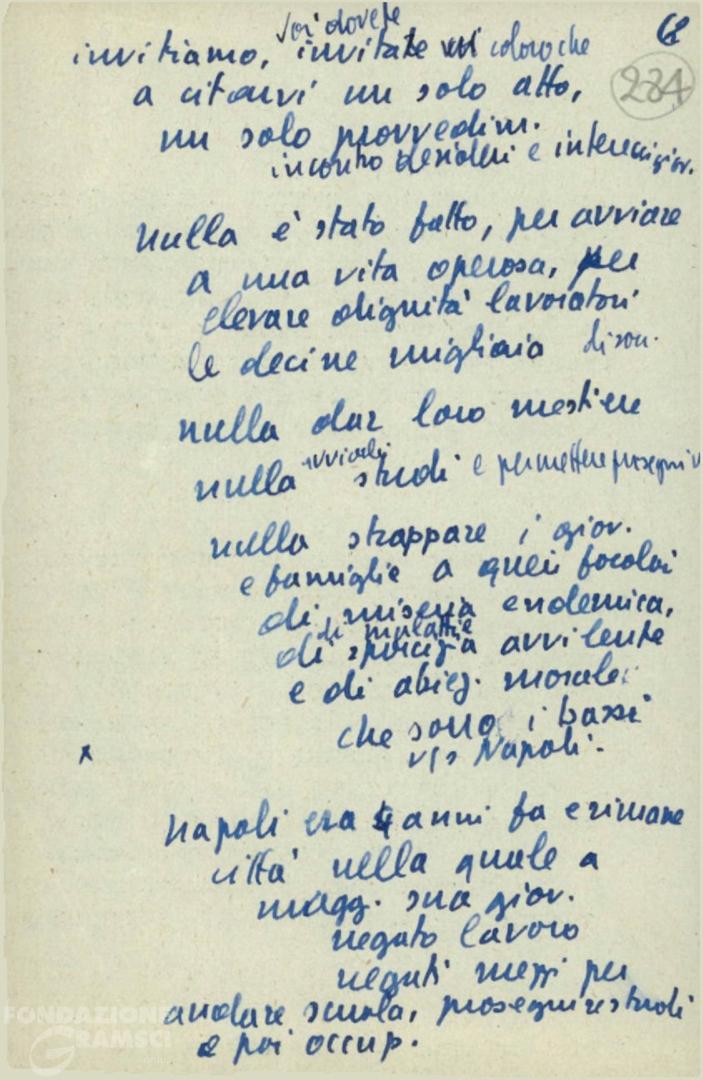 68
234
voi dovete
invitiamo, invitate voi coloro che
a citarvi un solo atto,
un solo provvedim.
incontro desideri e interessi giov.
nulla è stato fatto, per avviare
a una vita operosa, per
elevare dignità lavoratori
le decine migliaia disocc.
nulla dar loro mestiere
nulla avviarli studi e permettere proseguir
nulla strappare i giov.
e famiglie a quei focolai
di miseria endemica,
di malattie
di sporcizia avvilente
e di abiez. morale
che sono i bassi
Napoli.
x
Napoli era 4 anni fa e rimane
città nella quale a
magg. sua giov.
negato lavoro
negati mezzi per
andare scuola, proseguire studi
e poi occup.
FONDAZIONE
GRAMSCI